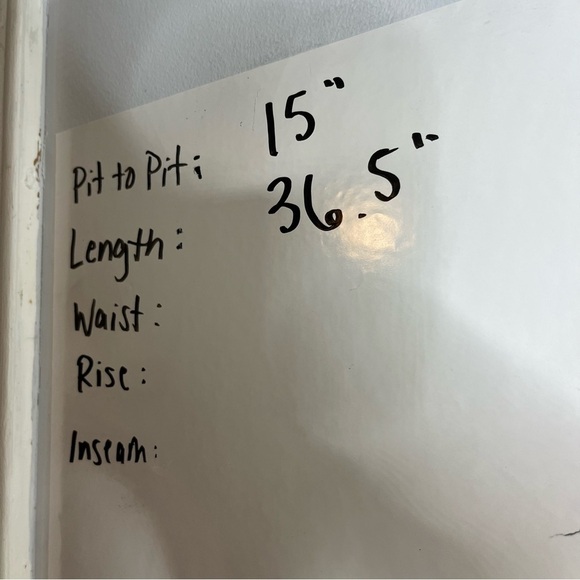 Pit to Pit: 15"
Length: 36.5"
Waist:
Rise:
Inseam: